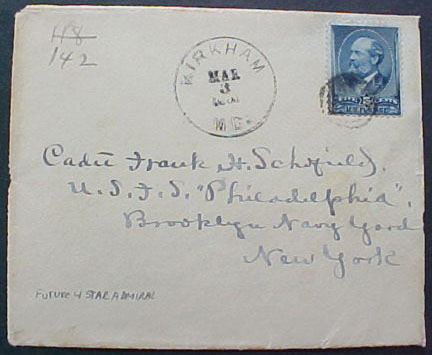 118
142
KIRKHAM
MAR
3
MD.
Cadet Frank H. Schofield,
U.S.F.S. "Philadelphia",
Brooklyn Navy Yard
New York
FUTURE 4 STAR ADMIRAL